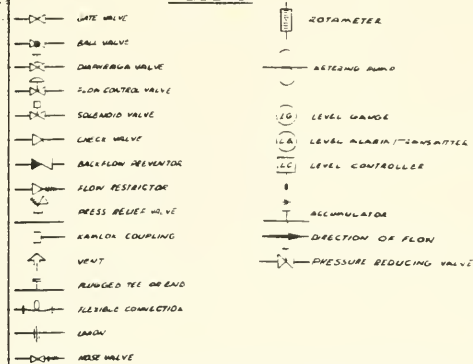 GATE VALVE
BALL VALVE
DIAPHRAGM VALVE
FLOW CONTROL VALVE
SOLENOID VALVE
CHECK VALVE
BACKFLOW PREVENTOR
FLOW RESTRICTOR
PRESS RELIEF VALVE
KAMLOK COUPLING
VENT
PLUGGED TEE OR END
FLEXIBLE CONNECTION
UNION
HOSE VALVE
ROTAMETER
METERING PUMP
LG LEVEL GAUGE
LA LEVEL ALARM/TRANSMITTER
LC LEVEL CONTROLLER
ACCUMULATOR
DIRECTION OF FLOW
PRESSURE REDUCING VALVE